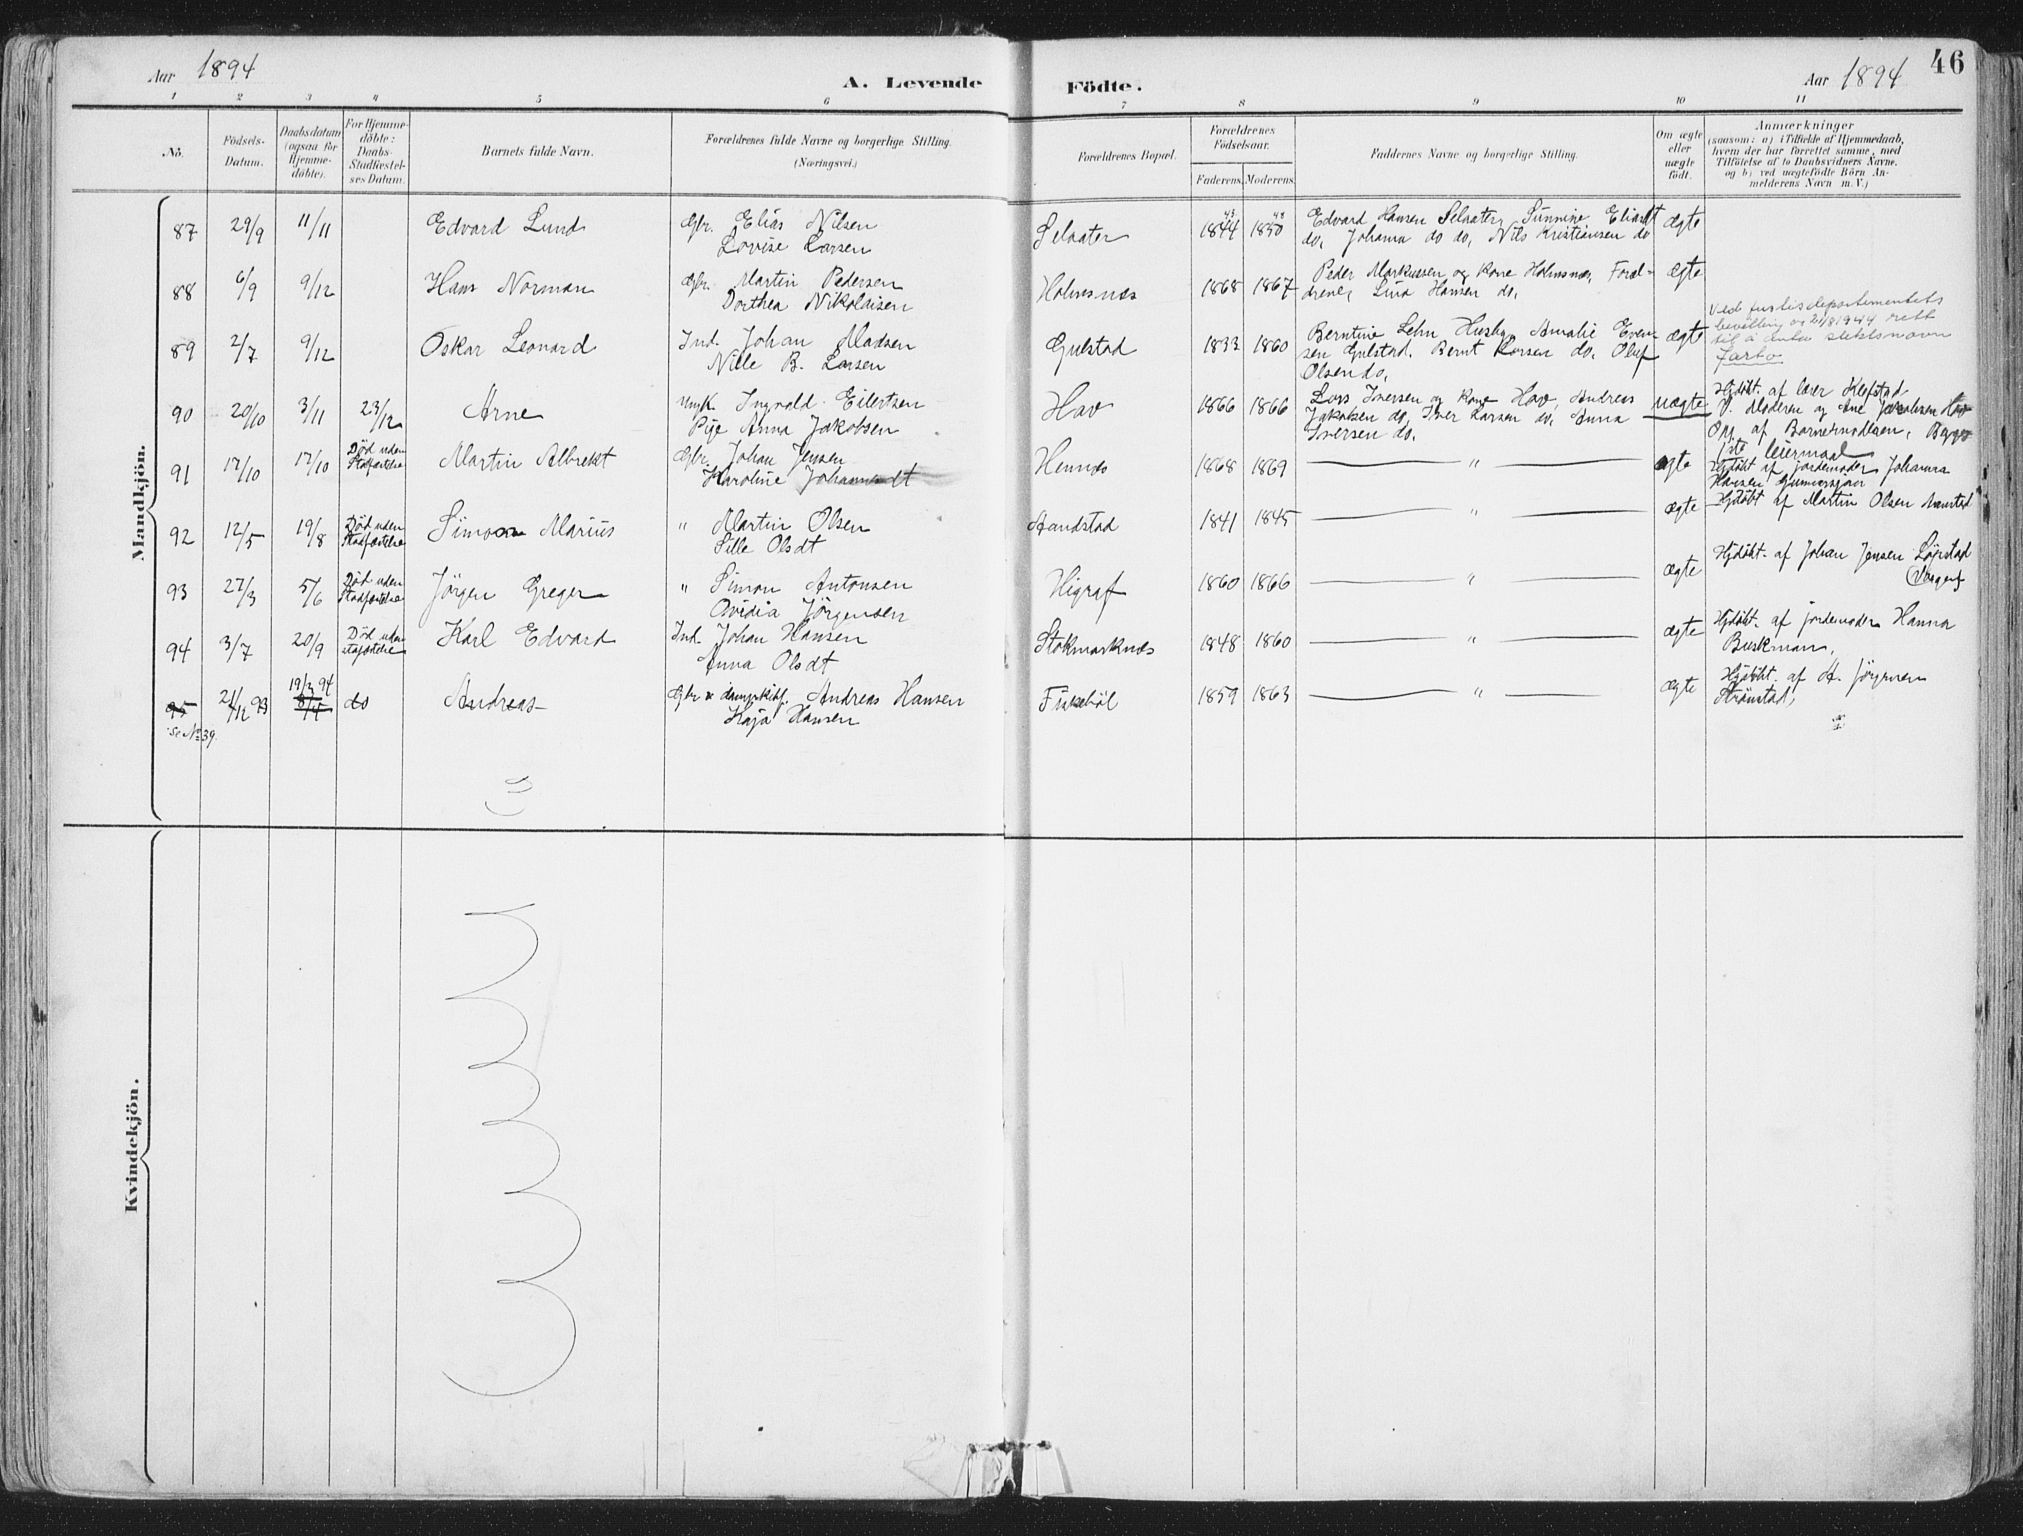 46
Aar 1894
A. Levende Födte.
Aar 1894
1 2 3 4 5 6 7 8 9 10 11
No.
Födsels-
Datum.
Daabsdatum
(ogsaa for
Hjemme-
döbte).
For Hjemme-
döbte:
Daabs-
Stadfæstel-
ses Datum.
Barnets fulde Navn.
Forældrenes fulde Navne og borgerlige Stilling.
(Næringsvei.)
Forældrenes Bopæl.
Forældrenes
Födselsaar.
Faderens. Moderens.
Faddernes Navne og borgerlige Stilling.
Om ægte
eller
uægte
födt.
Anmærkninger
(saasom: a) i Tilfælde af Hjemmedaab,
hvem der har forrettet samme, med
Tilföielse af to Daabsvidners Navne.
og b) ved uægtefödte Börn An-
melderens Navn m. V.)
Mandkjön.
87 29/9 11/11 Edvard Lund Gbr. Elias Nilsen
Lovise Larsen
Selaater 1844 43 1850 48
Edvard Hansen Selaater, Sunnine Eliasdt
do, Johanna do do, Nils Kristiansen do
ægte
88 6/9 9/12 Hans Norman Gbr. Martin Pedersen
Dorthea Nikolaisen
Holmsnæs 1868 1867
Peder Markussen og Kone Holmsnæs, Foræl-
drene, Lina Hansen do,
ægte
89 2/7 9/12 Oskar Leonard Ind. Johan Madsen
Nille B. Larsen
Gulstad 1833 1860
Berntine Lehn Husby, Amalie Even-
sen Gulstad. Bernt Larsen do, Oluf
Olsen do,
ægte
Ved justisdepartementets
bevilling og 21/8 1944 rett
til å anta slektsnavn
Jarbo
90 20/10 3/11 23/12 Arne Ungk. Ingvald Eilertsen
Pige Anna Jakobsen
Hav 1866 1866
Lars Iversen og Kone Hav, Andreas
Jakobsen do, Iver Larsen do, Anna
Iversen do.
uægte
Hjdöbt. af lærer Klefstad
V. Moderen og Ane Jakobsen Hav
Opg. af Barnemoderen, Begges
1ste leiermaal
91 17/10 17/10 Död uden
Stadfæstelse
Martin Albrekt Gbr. Johan Jensen
Karoline Johannesdt
Hennes 1868 1869 " ægte
Hjdöbt af jordemoder Johanna
Hansen
92 12/5 19/8 Död uden
Stadfæstelse
Simon Marius " Martin Olsen
Sille Olsdt
Sandstad 1841 1845 " ægte
Hjdöbt af Martin Olsen
93 27/3 5/6 Död uden
Stadfæstelse
Jörgen Greger " Simon Antonsen
Ovidia Jörgensen
Higraf 1860 1866 " ægte
Hjdöbt. af Johan Jensen
94 3/7 20/9 Död uden
stafæstelse
Karl Edvard Ind. Johan Hansen
Anna Olsdt
Stokmarknæs 1848 1860 " ægte
Hjdöbt. af jordemoder Hanna
Buskman,
95 21/12 93 19/3 94
8/4 do
Andreas Gbr & Andreas Hansen
Kaja Hansen
Fiskebøl 1859 1863 " ægte
Hjdöbt. af A. Jörgensen
Strönstad,
se No 39.
Kvindekjön.